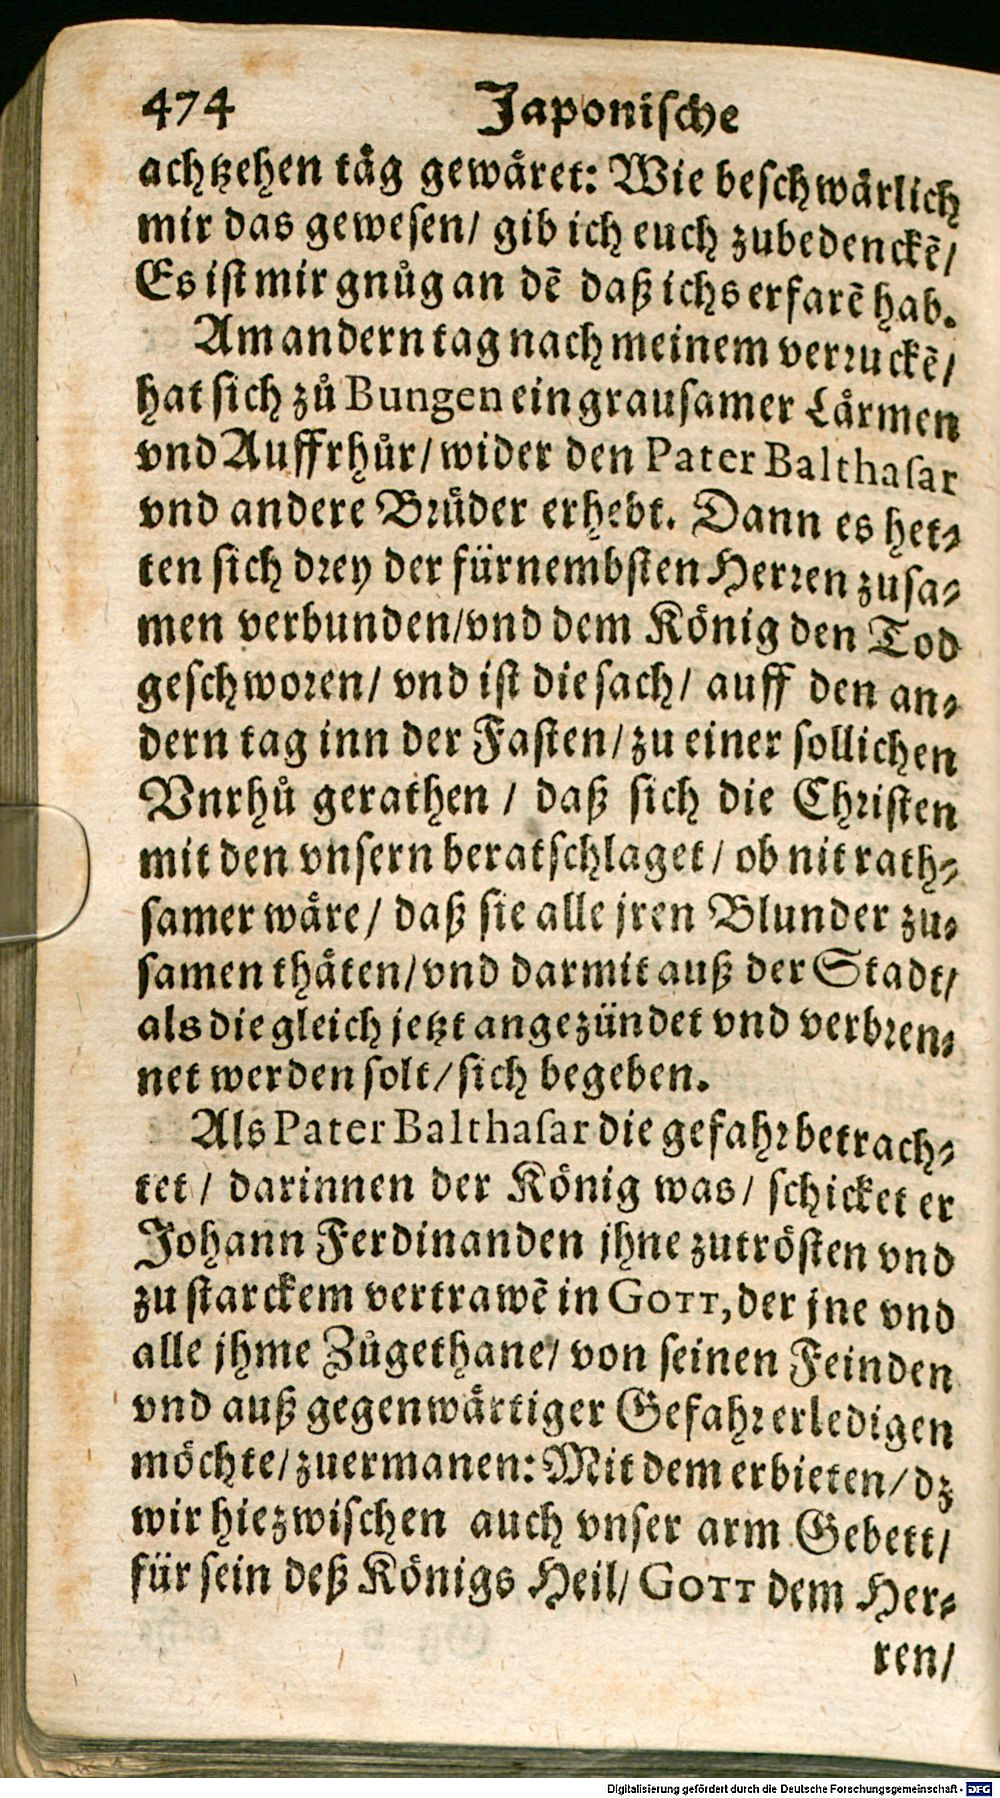 474 Japonische
achtzehen taͤg gewaͤret: Wie beschwaͤrlich
mir das gewesen/ gib ich euch zubedenckẽ/
Es ist mir gnuͦg an dẽ daß ichs erfarẽ hab.
Am andern tag nach meinem verruckẽ/
hat sich zuͦ Bungen ein grausamer Laͤrmen
vnd Auffrhuͦr/ wider den Pater Balthasar
vnd andere Bruͤder erhebt. Dann es het-
ten sich drey der fürnembsten Herren zusa-
men verbunden/ vnd dem König den Tod
geschworen/ vnd ist die sach/ auff den an-
dern tag inn der Fasten/ zu einer sollichen
Vnrhuͦ gerathen / daß sich die Christen
mit den vnsern beratschlaget/ ob nit rath-
samer waͤre/ daß sie alle jren Blunder zu-
samen thaͤten/ vnd darmit auß der Stadt/
als die gleich jetzt angezündet vnd verbren-
net werden solt/ sich begeben.
Als Pater Balthasar die gefahr betrach-
tet / darinnen der König was/ schicket er
Johann Ferdinanden jhne zutrösten vnd
zu starckem vertrawẽ in GOTT, der jne vnd
alle jhme Zuͦgethane/ von seinen Feinden
vnd auß gegenwaͤrtiger Gefahr erledigen
möchte/ zuermanen: Mit dem erbieten/ dz
wir hiezwischen auch vnser arm Gebett/
für sein deß Königs Heil/ GOTT dem Her-
ren/
Digitalisierung gefördert durch die Deutsche Forschungsgemeinschaft - DFG